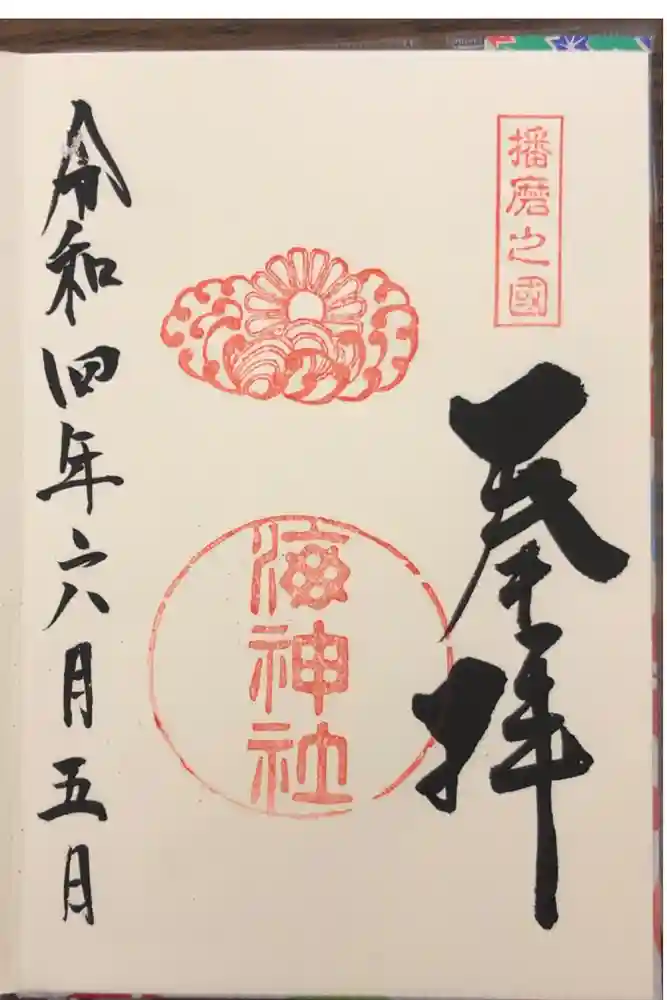 播磨之國
奉拝
海神社
令和四年六月五月